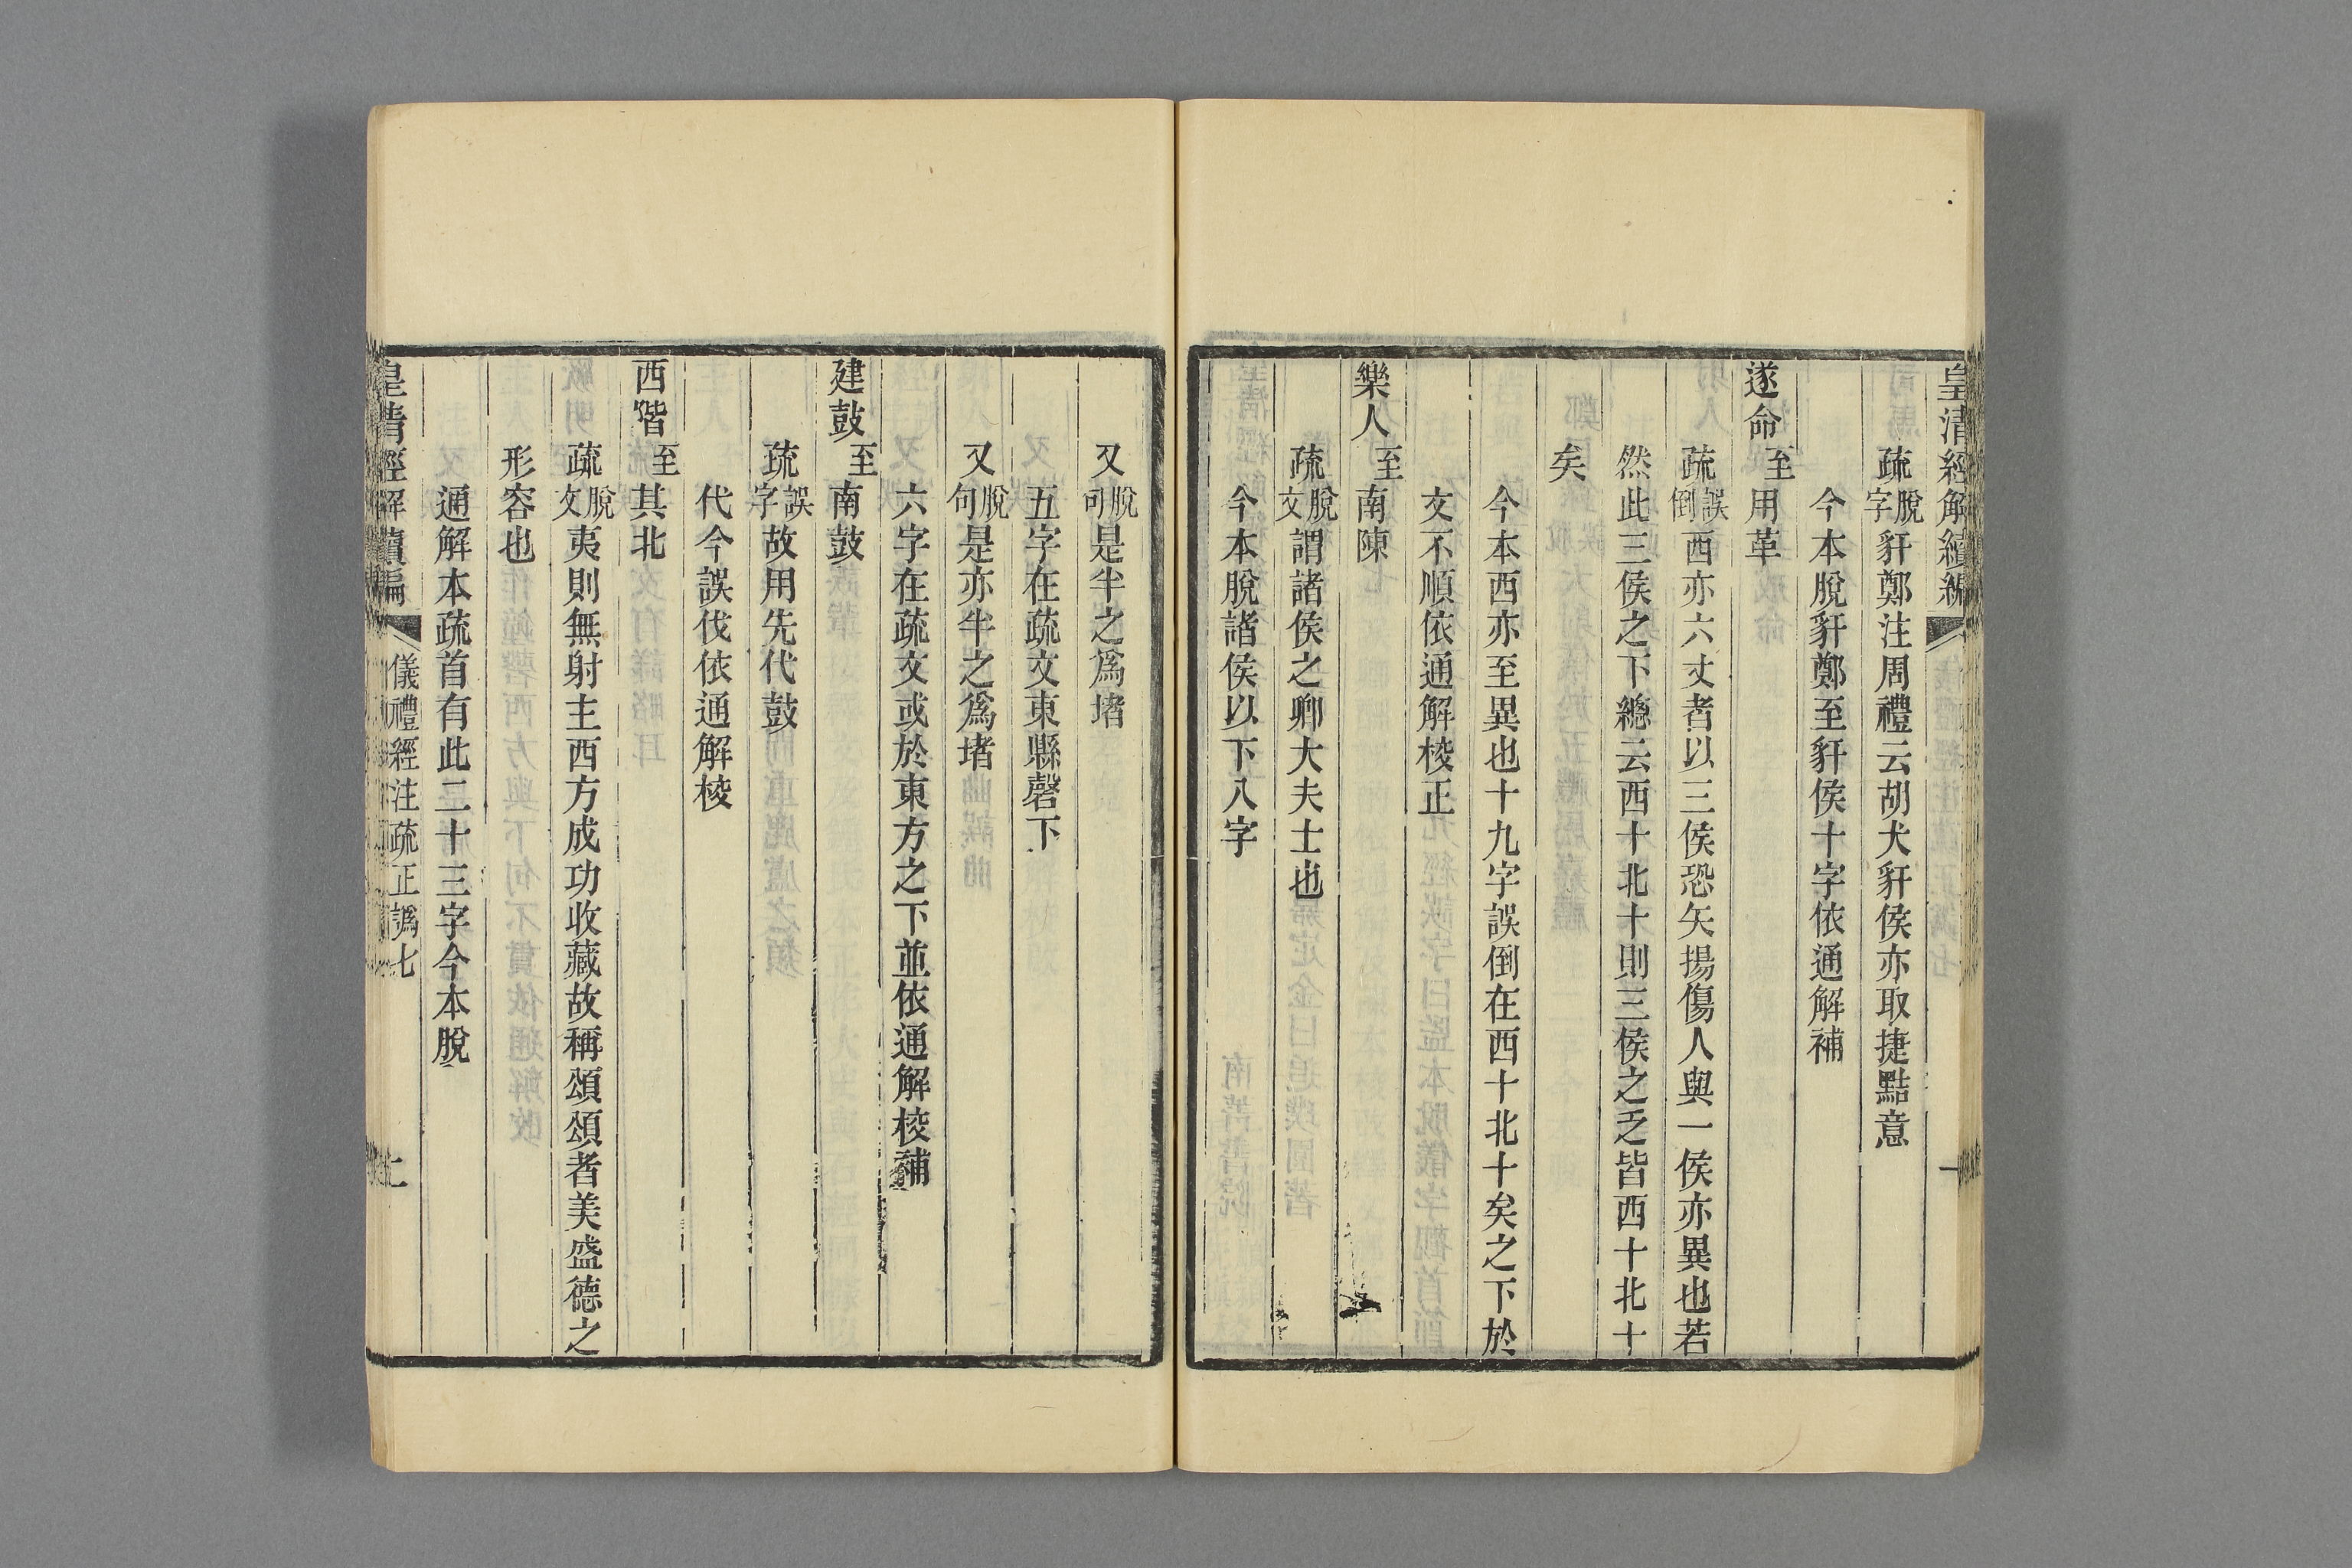 皇清經解續編
疏脫字豻鄭注周禮云胡犬豻侯亦取捷黠意
今本脫豻鄭至豻侯十字依通解補
遂命至用革
疏誤倒西亦六丈者以三侯恐矢揚傷人與一侯亦異也若
然此三侯之下總云西十北十則三侯之乏皆西十北十
矣
今本西亦至異也十九字誤倒在西十北十矣之下於
文不順依通解校正
樂人至南陳
疏脫文謂諸侯之卿大夫士也
今本脫諸侯以下八字
又脫句是半之爲堵
五字在疏文東縣磬下
又脫句是亦半之爲堵
六字在疏文或於東方之下並依通解校補
建鼓至南鼓
疏誤字故用先代鼓
代今誤伐依通解校
西階至其北
疏脫文夷則無射主西方成功收藏故稱頌頌者美盛德之
形容也
通解本疏首有此二十三字今本脫
皇清經解續編
儀禮經注疏正譌七